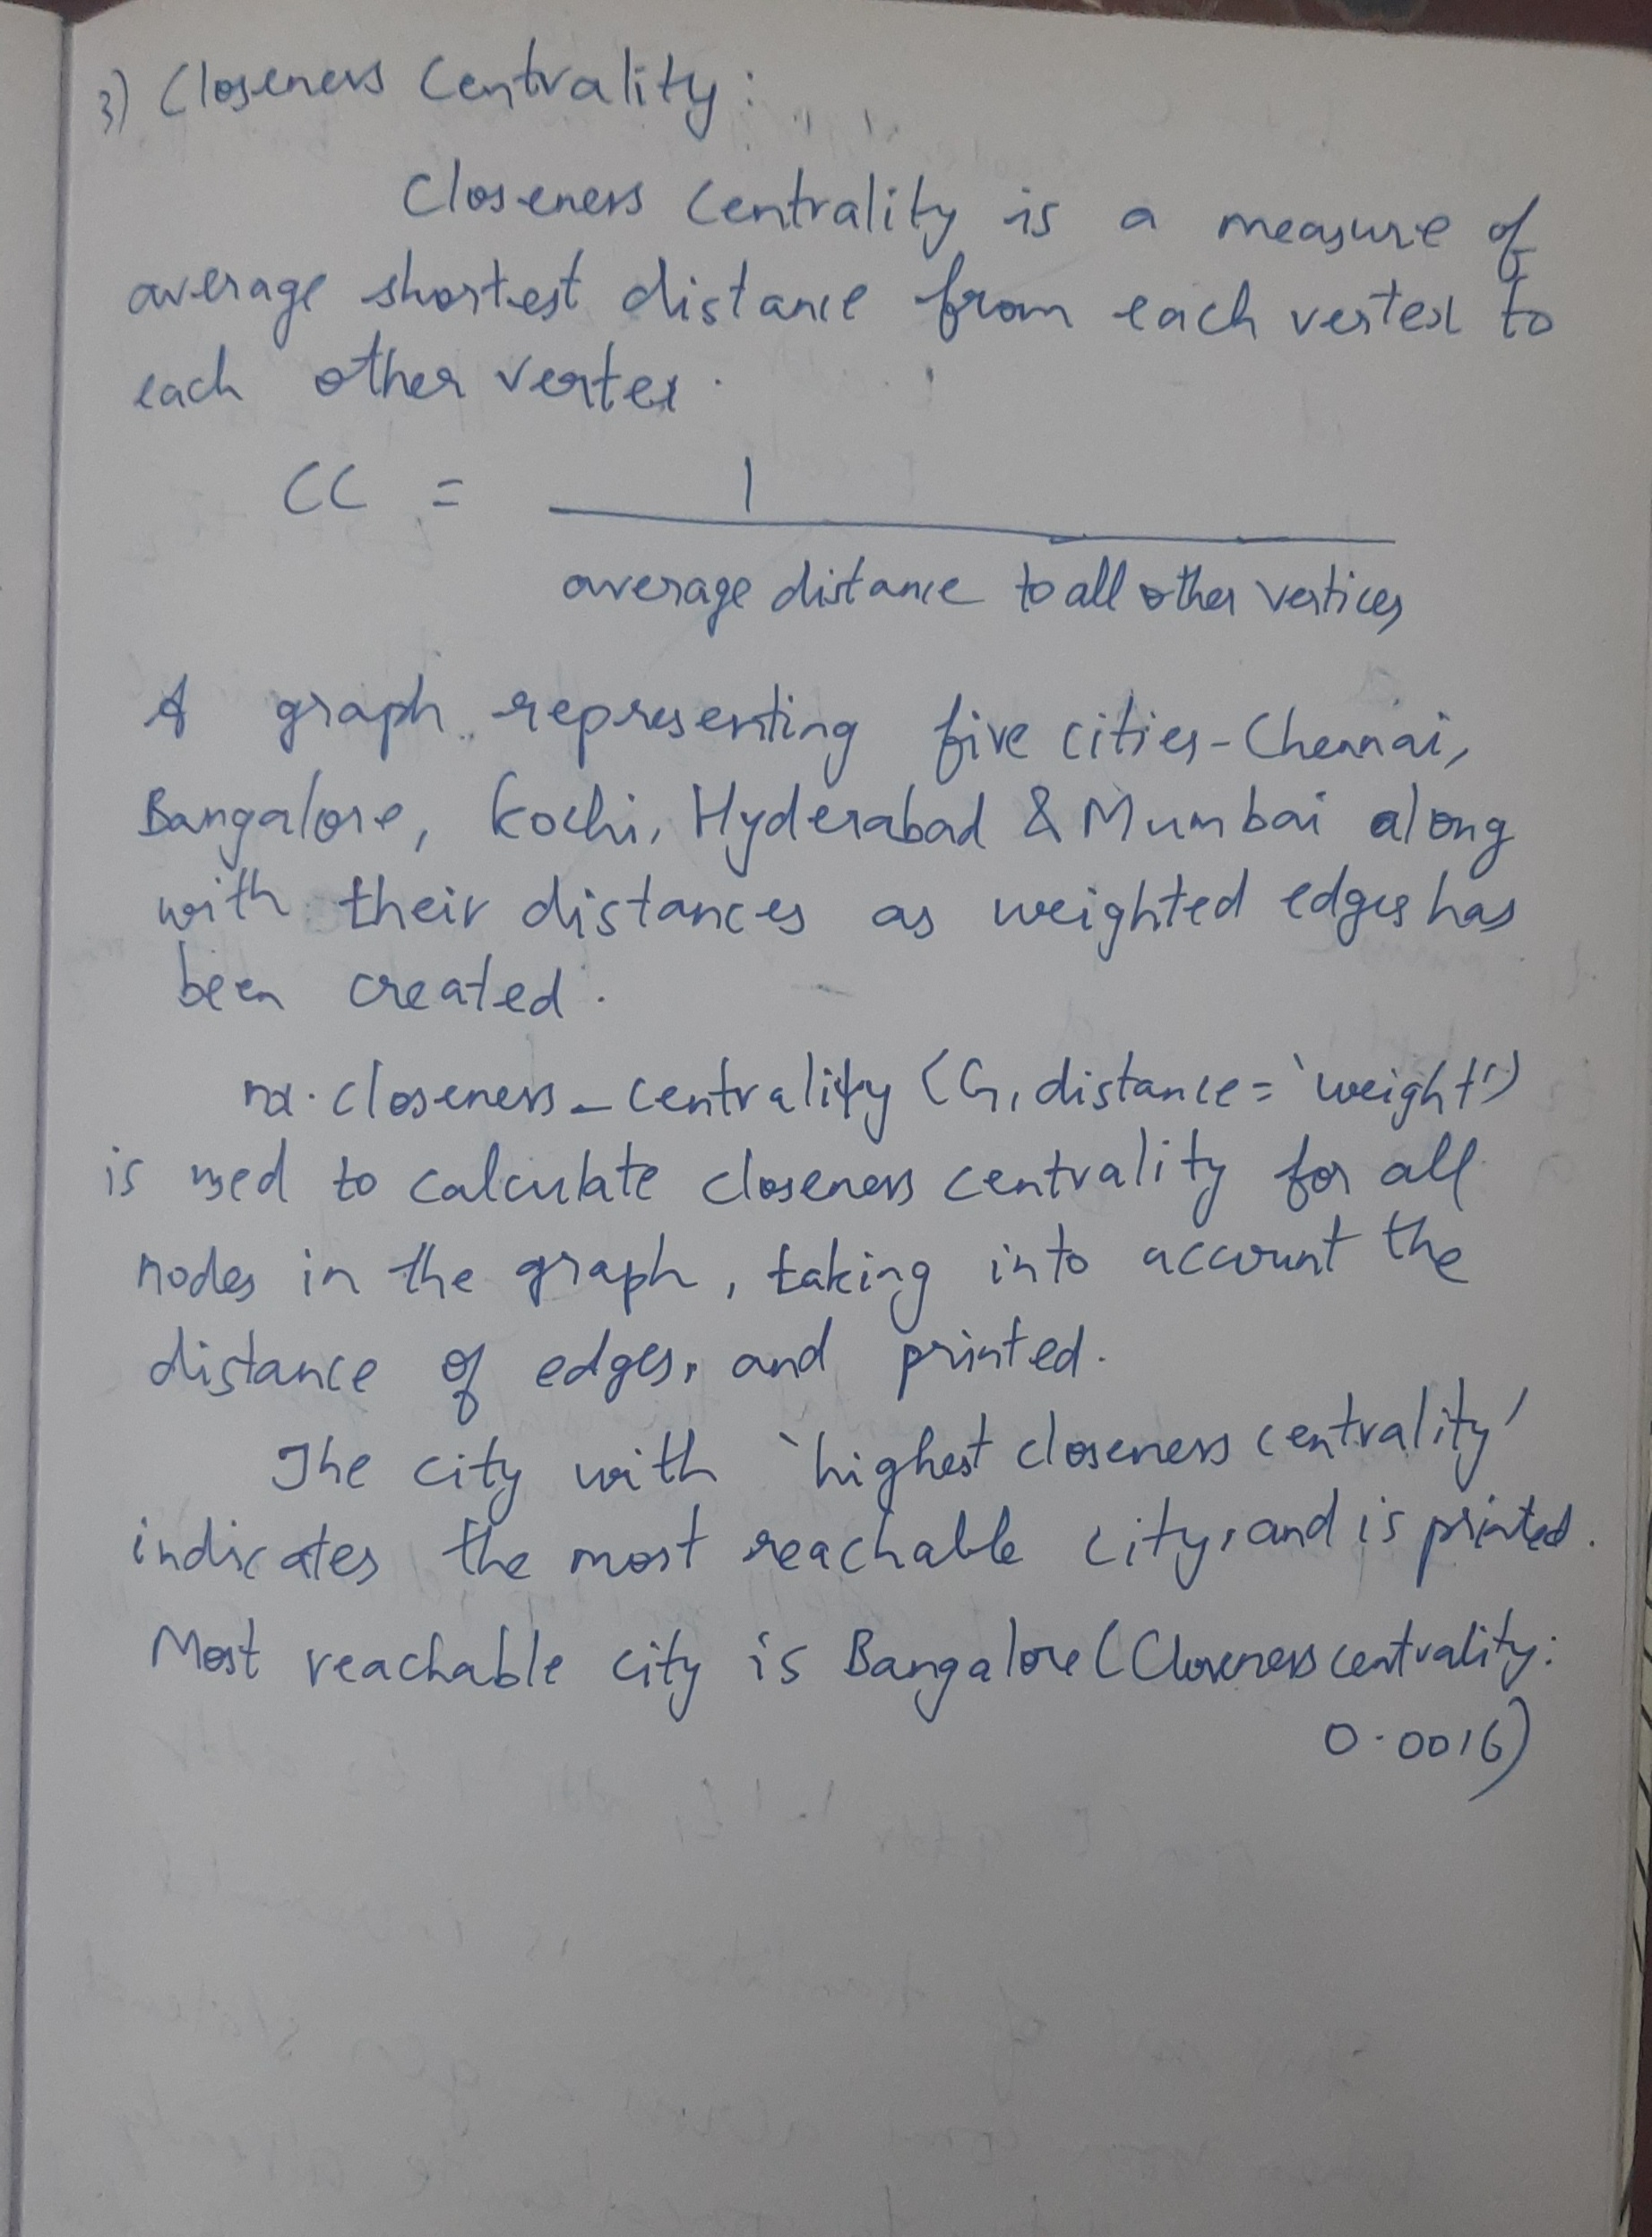 3) Closeness Centrality:
Closeness Centrality is a measure of
average shortest distance from each vertex to
each other vertex.
CC = 1
average distance to all other vertices
A graph representing five cities - Chennai,
Bangalore, Kochi, Hyderabad & Mumbai along
with their distances as weighted edges has
been created.
nx.closeness_centrality (G, distance = 'weight')
is used to calculate closeness centrality for all
nodes in the graph, taking into account the
distance of edges, and printed.
The city with 'highest closeness centrality'
indicates the most reachable city, and is printed.
Most reachable city is Bangalore (Closeness centrality:
0.0016)